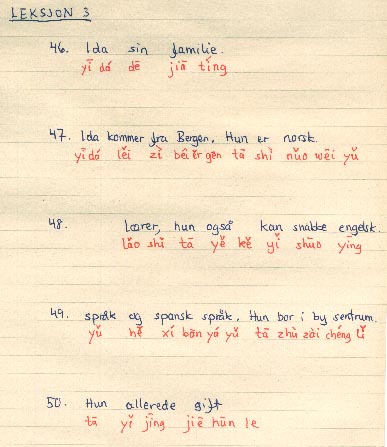 LEKSJON 3
46. Ida sin familie.
yī dá dē jiā tíng
47. Ida kommer fra Bergen. Hun er norsk.
yī dá lěi zì bēi ěr gēn tā shì nuǒ wēi yǔ
48. Lærer, hun også kan snakke engelsk.
lǎo shī tā yě kě yǐ shūo yīng
49. språk og spansk språk. Hun bor i by sentrum.
yǔ hě xí bān yá yǔ tā zhù zài chéng lǐ
50. Hun allerede gift
tā yǐ jīng jiē hūn le